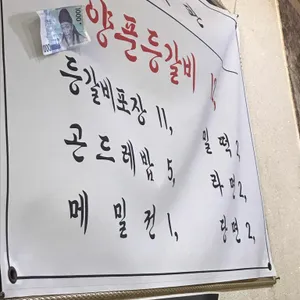 양푼등갈비
등갈비포장 11,
곤드레밥 5,
메밀전 1,
밀떡 2,
라면 2,
당면 2,
1000